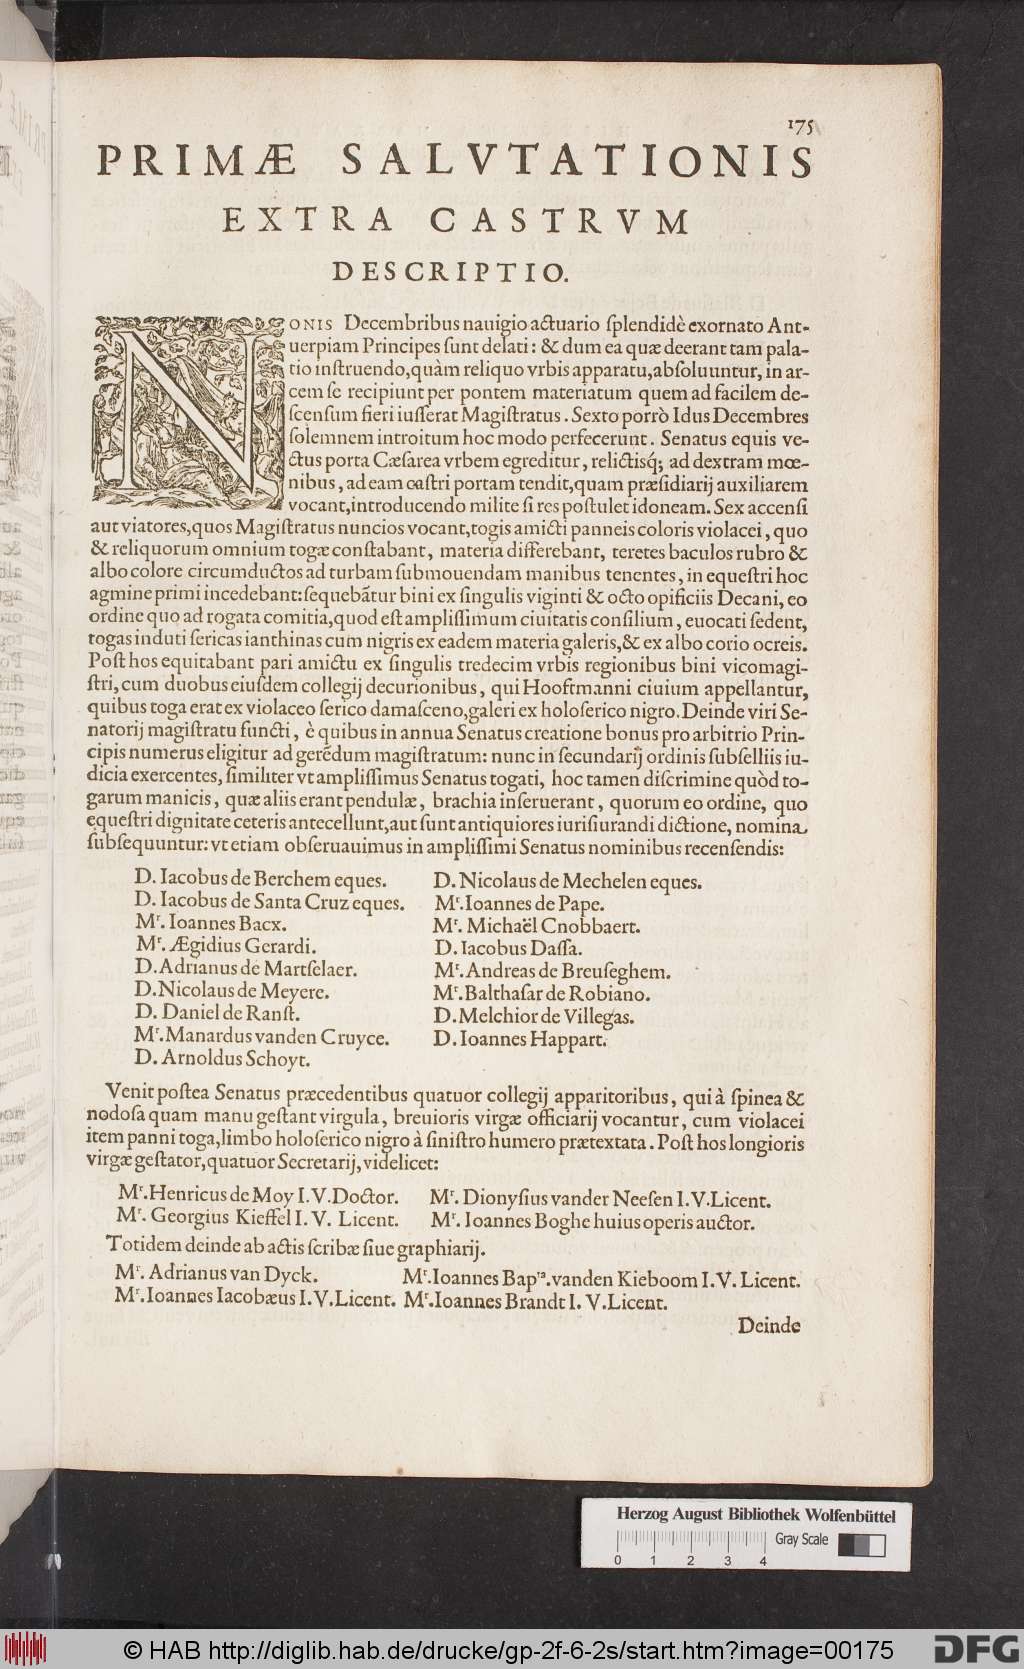 175
PRIMÆ SALVTATIONIS
EXTRA CASTRVM
DESCRIPTIO.
NONIS Decembribus nauigio actuario ſplendidè exornato Ant-
uerpiam Principes ſunt delati: & dum ea quæ deerant tam pala-
tio inſtruendo, quàm reliquo vrbis apparatu, abſoluuntur, in ar-
cem ſe recipiunt per pontem materiatum quem ad facilem de-
ſcenſum fieri iuſſerat Magiſtratus. Sexto porrò Idus Decembres
ſolemnem introitum hoc modo perfecerunt. Senatus equis ve-
ctus porta Cæſarea vrbem egreditur, relictisq́; ad dextram mœ-
nibus, ad eam caſtri portam tendit, quam præſidiarij auxiliarem
vocant, introducendo milite ſi res poſtulet idoneam. Sex accenſi
aut viatores, quos Magiſtratus nuncios vocant, togis amicti panneis coloris violacei, quo
& reliquorum omnium togæ conſtabant, materia differebant, teretes baculos rubro &
albo colore circumductos ad turbam ſubmouendam manibus tenentes, in equeſtri hoc
agmine primi incedebant: ſequebãtur bini ex ſingulis viginti & octo opificiis Decani, eo
ordine quo ad rogata comitia, quod eſt ampliſſimum ciuitatis conſilium, euocati ſedent,
togas induti ſericas ianthinas cum nigris ex eadem materia galeris, & ex albo corio ocreis.
Poſt hos equitabant pari amictu ex ſingulis tredecim vrbis regionibus bini vicomagi-
ſtri, cum duobus eiuſdem collegij decurionibus, qui Hooftmanni ciuium appellantur,
quibus toga erat ex violaceo ſerico damaſceno, galeri ex holoſerico nigro. Deinde viri Se-
natorij magiſtratu functi, è quibus in annua Senatus creatione bonus pro arbitrio Prin-
cipis numerus eligitur ad gerẽdum magiſtratum: nunc in ſecundarij ordinis ſubſelliis iu-
dicia exercentes, ſimiliter vt ampliſſimus Senatus togati, hoc tamen diſcrimine quòd to-
garum manicis, quæ aliis erant pendulæ, brachia inſeruerant, quorum eo ordine, quo
equeſtri dignitate ceteris antecellunt, aut ſunt antiquiores iurisiurandi dictione, nomina
ſubſequuntur: vt etiam obſeruauimus in ampliſſimi Senatus nominibus recenſendis:
D. Iacobus de Berchem eques. D. Nicolaus de Mechelen eques.
D. Iacobus de Santa Cruz eques. Mr. Ioannes de Pape.
Mr. Ioannes Bacx. Mr. Michaël Cnobbaert.
Mr. Ægidius Gerardi. D. Iacobus Daſſa.
D. Adrianus de Martſelaer. Mr. Andreas de Breuſeghem.
D. Nicolaus de Meyere. Mr. Balthaſar de Robiano.
D. Daniel de Ranſt. D. Melchior de Villegas.
Mr. Manardus vanden Cruyce. D. Ioannes Happart.
D. Arnoldus Schoyt.
Venit poſtea Senatus præcedentibus quatuor collegij apparitoribus, qui à ſpinea &
nodoſa quam manu geſtant virgula, breuioris virgæ officiarij vocantur, cum violacei
item panni toga, limbo holoſerico nigro à ſiniſtro humero prætextata. Poſt hos longioris
virgæ geſtator, quatuor Secretarij, videlicet:
Mr. Henricus de Moy I.V. Doctor. Mr. Dionyſius vander Neeſen I.V. Licent.
Mr. Georgius Kieffel I. V. Licent. Mr. Ioannes Boghe huius operis auctor.
Totidem deinde ab actis ſcribæ ſiue graphiarij.
Mr. Adrianus van Dyck. Mr. Ioannes Bapta. vanden Kieboom I. V. Licent.
Mr. Ioannes Iacobæus I. V. Licent. Mr. Ioannes Brandt I. V. Licent.
Deinde
Herzog August Bibliothek Wolfenbüttel
Gray Scale
0 1 2 3 4
© HAB http://diglib.hab.de/drucke/gp-2f-6-2s/start.htm?image=00175
DFG